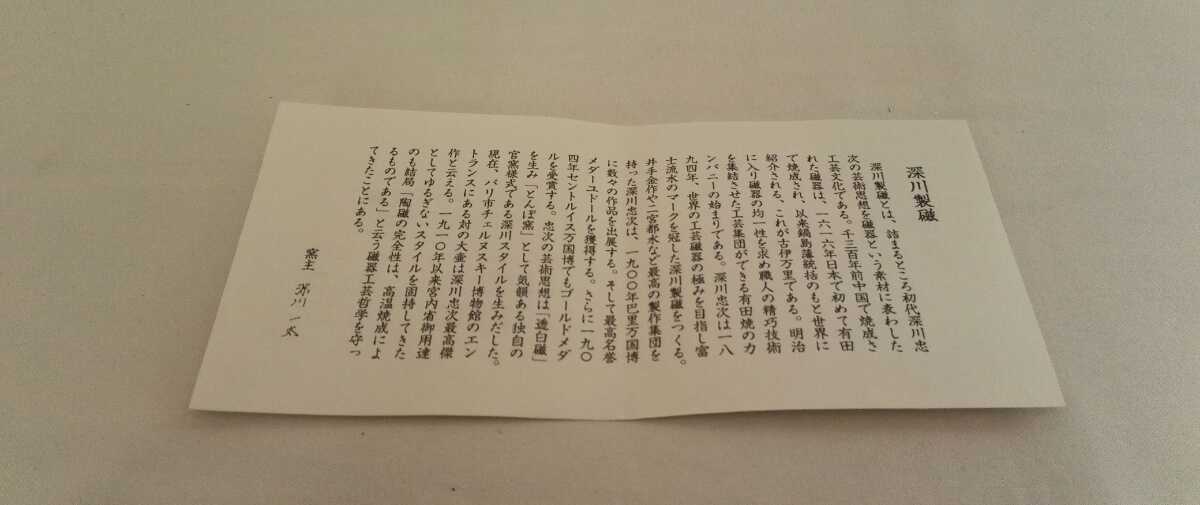 深川製磁
深川製磁とは、詰まるところ初代深川忠
次の芸術思想を磁器という素材に表わした
工芸文化である。千三百年前中国で焼成さ
れた磁器は、一六一六年日本で初めて有田
で焼成され、以来鍋島藩統括のもと世界に
紹介される、これが古伊万里である。明治
に入り磁器の均一性を求め職人の精巧技術
を集結させた工芸集団ができる有田焼の力
ンパニーの始まりである。深川忠次は一八
九四年、世界の工芸磁器の極みを目指し富
士流水のマークを冠した深川製磁をつくる。
井手金作や二宮都水など最高の製作集団を
持った深川忠次は、一九〇〇年巴里万国博
に数々の作品を出展する。そして最高名誉
メダーユドールを獲得する。さらに一九〇
四年セントルイス万国博でもゴールドメダ
ルを受賞する。忠次の芸術思想は「透白磁」
を生み「とんぼ窯」として気韻ある独自の
官窯様式である深川スタイルを生みだした。
現在、パリ市チェルヌスキー博物館のエン
トランスにある対の大壷は深川忠次最高傑
作と云える。一九一〇年以来宮内省御用達
としてゆるぎないスタイルを固持してきた
のも結局「陶磁の完全性は、高温焼成によ
るものである」と云う磁器工芸哲学を守っ
てきたことにある。
窯主 深川一太